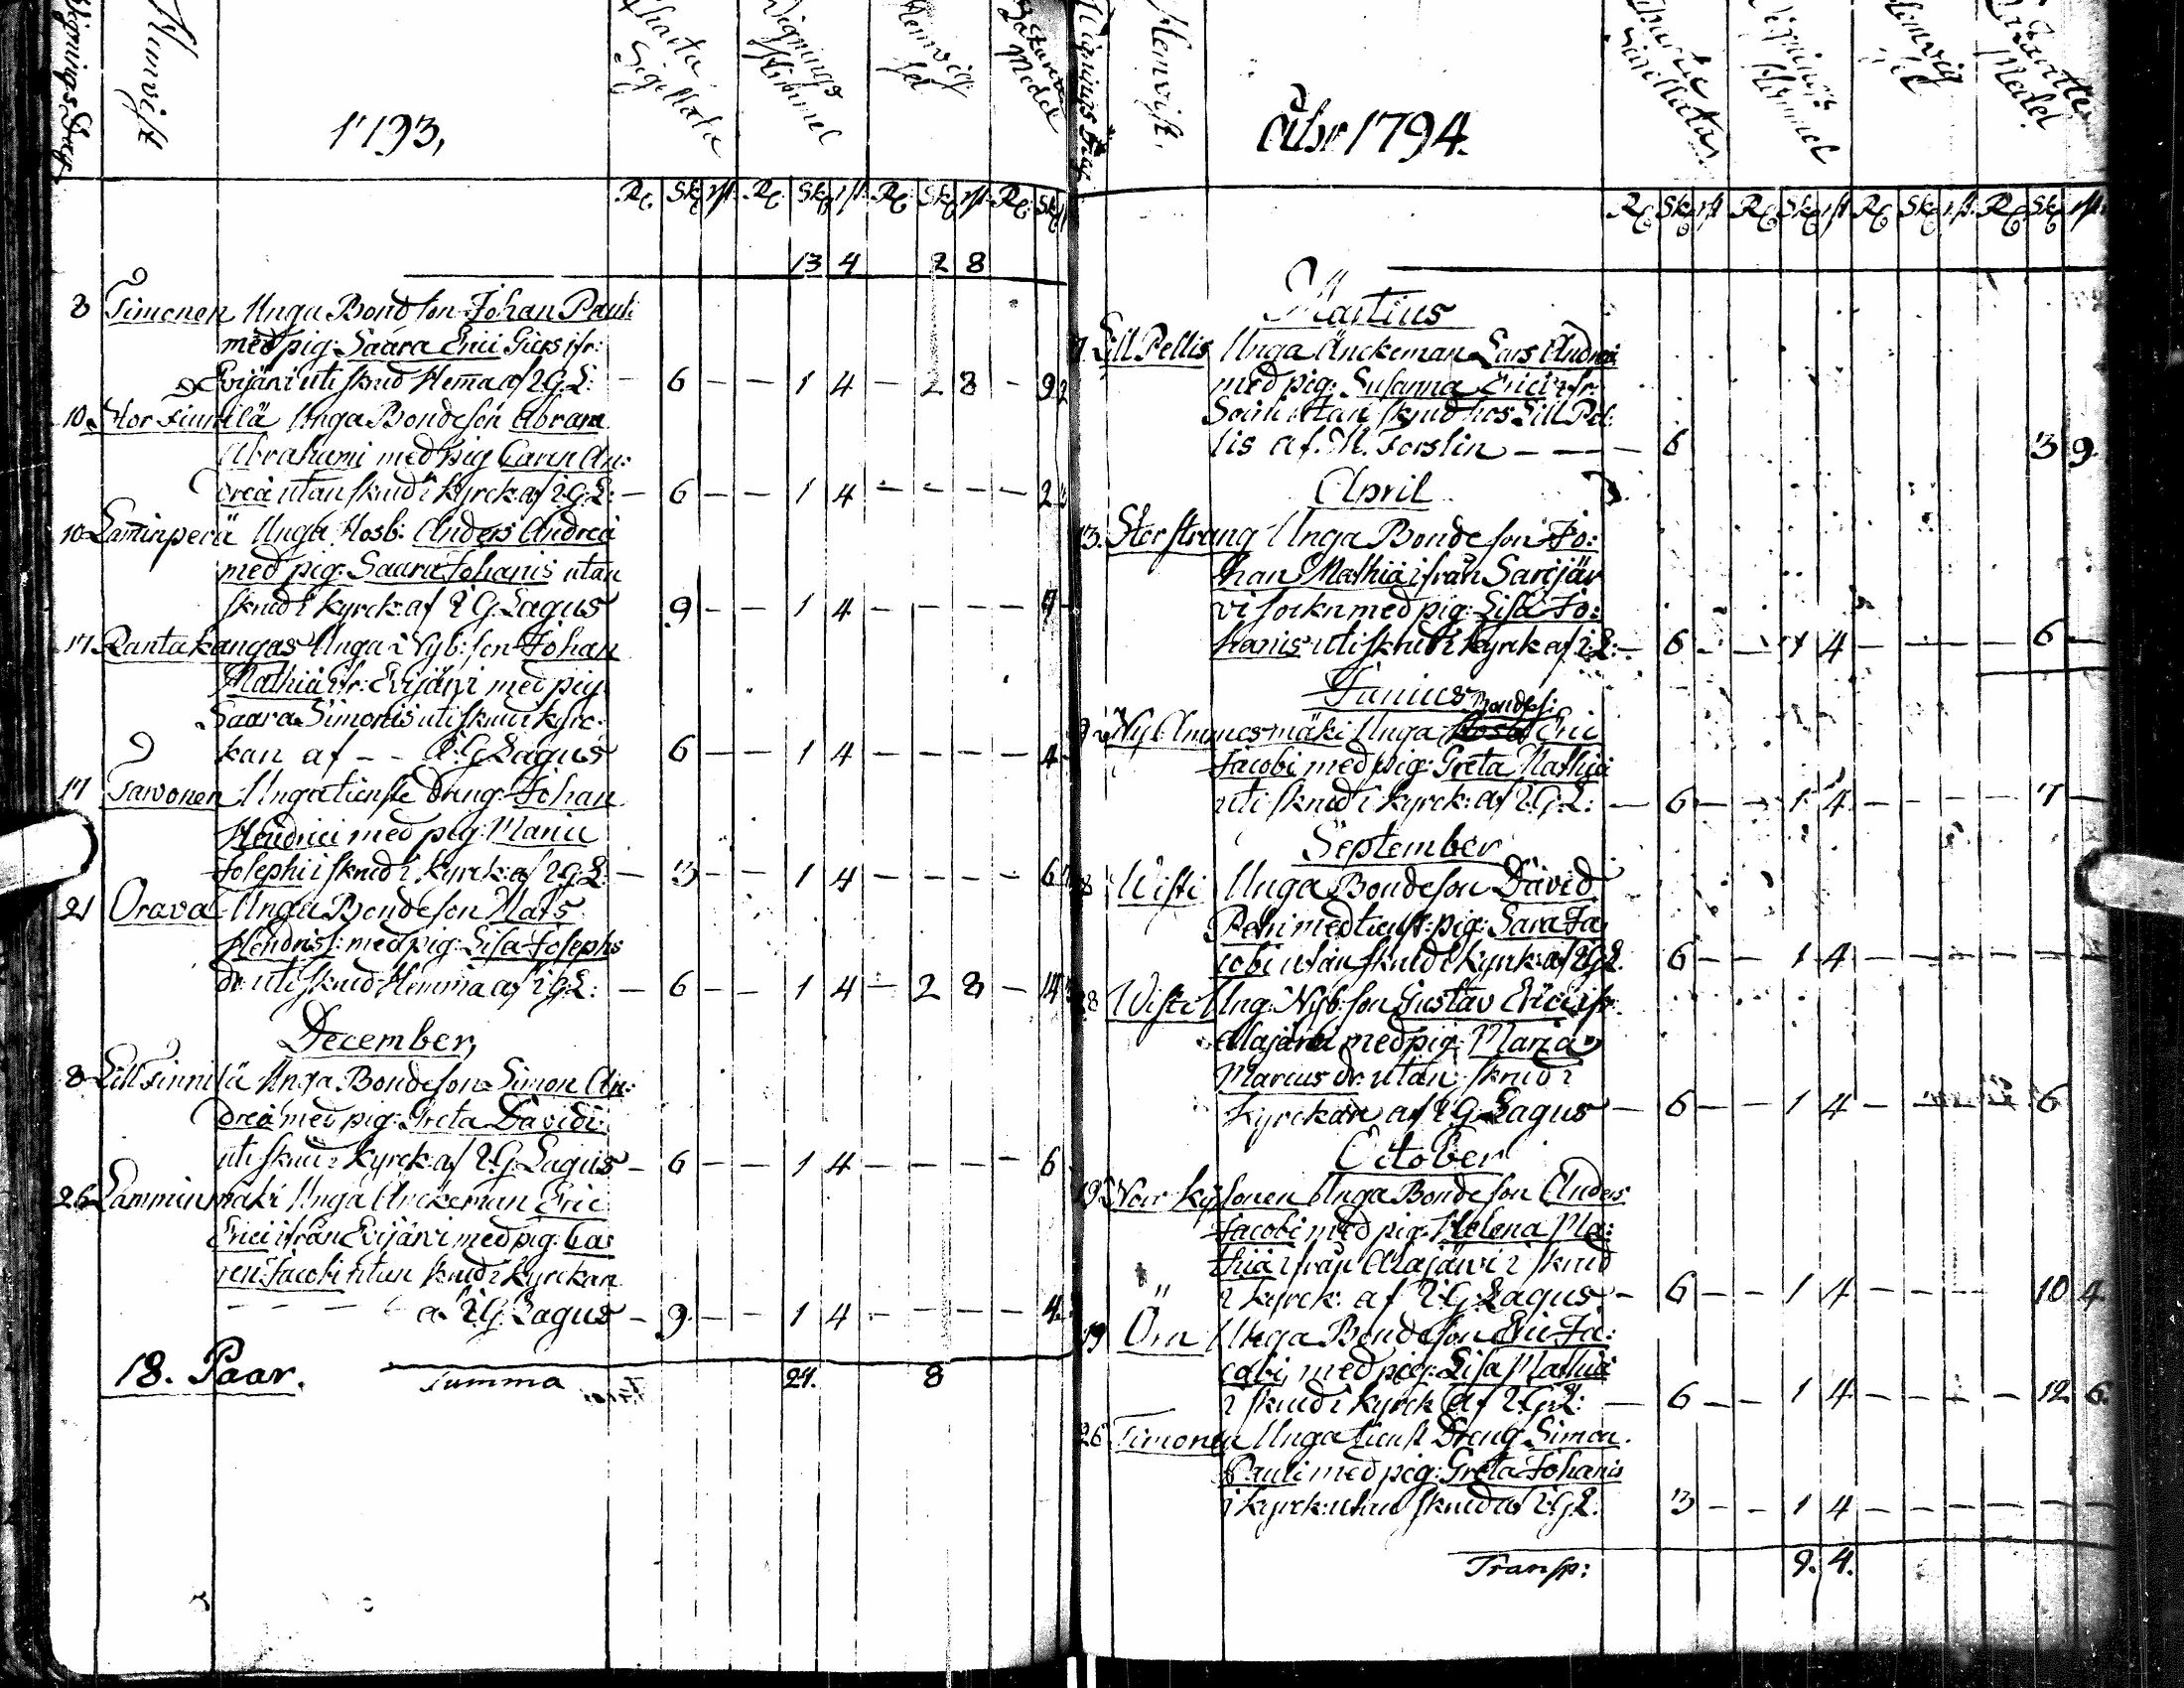 Wignings Dag
Hemvist
1793,
Charta Sigillata
Wignings Stämmel
Hemvig:
Lazarett Medel
Rd. Sk. rst. Rd. Sk. rst. Rd. Sk. rst. Rd. Sk.
13 4 2 8
8 Timonen Unga Bond son Johan Pauli
med pig: Saara Erici ifr:
Evijärvi uti skrud Hemma af I.G.L: — 6 — — 1 4 — 2 8 — 9
10. Stor Finnilä Unga Bondeson Abram
Abrahami med pig Caren An:
dreä utan skrud i kyrck: af I.G.L: — 6 — — 1 4 — — — — 2
10 Lamminperä Unga Hosb: Anders Andreä
med pig: Saara Johanis utan
skrud i kyrck: af I G. Lagus 9 — — 1 4 — — — —
17 Rantakangas Unga Nyb: son Johan
Mathiä ifr: Evijärvi med pig
Saara Simonis uti skrud i kyrc:
kan af — — I:G Lagus 6 — — 1 4 — — — — 4
17 Tarvonen Unga tienste Dreng: Johan
Hendrici med pig: Maria
Josephi i skrud i kyrck: af I G L: — 3 — — 1 4 — — — — 6
21 Orava Unga Bondeson Mats
Hendriss: med pig: Lisa Josephs
dr uti skrud Hemma af I G L: — 6 — — 1 4 — 2 8 — 14
December,
8 Lill Finnilä Unga Bondeson Simon An:
dreä med pig: Greta Davidi
uti skrud i kyrck: af I.G. Lagus — 6 — — 1 4 — — — — 6
26 Lamminmäki Unga Änckeman Eric
Erici ifrån Evijärvi med pig: Ca:
ren Jacobi utan skrud i kyrckan
af I.G. Lagus — 9 — — 1 4 — — — — 4
18. Paar. Summa 27. 8
Wignings Dag
Hemvist.
Åhr 1794.
Charta Sigillata
Wignings Stämmel
Hemvig
Lazarette Medel
Rd Sk rst Rd Sk rst Rd Sk rst Rd Sk rst
Martius
Lill Pellis Unga Änckeman Lars Andreä
med pig: Susanna Erici ifr
Soini utan skrud hos Lill Pel:
lis af. M. Forslin — — — 6 3 9
April
13. Stor strang Unga Bondeson Jo:
han Mathiä ifrån Sarijär
vi sockn med pig: Lisa Jo:
hanis uti skrud i kyrck af I:L: — 6 — — 1 4 — — — — 6 —
Junius
Bondes:
Nyb Ammesmäki Unga Eric
Jacobi med pig: Greta Mathiä
uti skrud i kyrck: af I:G:L: — 6 — — 1 4 — — — — 7 —
September
Wisti Unga Bondeson David
Petri med tienst: pig: Sara Ja
cobi utan skrud i kyrck: af IGL. 6 — — 1 4 — — — — — —
28 Wisti Ung: Nyb: son Gustav Erici ifr:
Alajärvi med pig: Maria
Marcus dr: utan skrud i
kyrckan af I G Lagus — 6 — — 1 4 — — 6
October
19 Norr Kyjonen Unga Bondeson Anders
Jacobi med pig: Helena Ma:
thiä ifrån Alajärvi i skrud
i kyrck: af I:G: Lagus — 6 — — 1 4 — — — 10 4
19 Örn Unga Bondeson Eric Ja:
cobi, med pig: Lisa Mathiä
i skrud i kyrck af I.G.L: — 6 — — 1 4 — — — — 12 6
26 Timonen Unga tienst Dreng Simon.
Pauli med pig: Greta Johanis
i kyrck: utan skrud af I:G.L. 3 — — 1 4 — — — — — —
Transp: 9. 4.